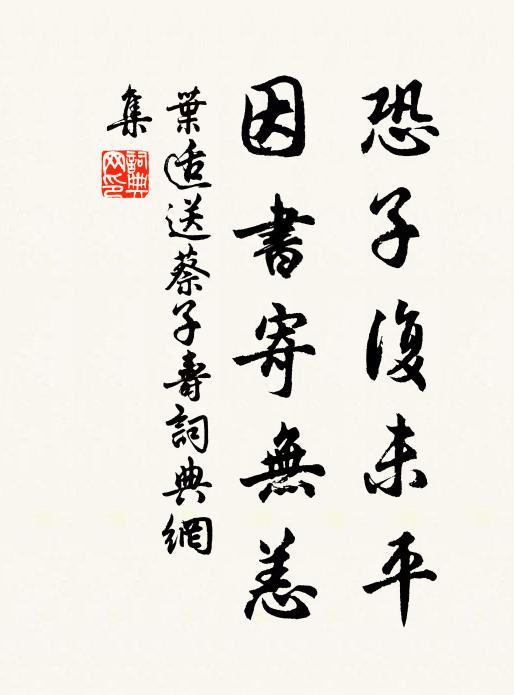 恐子復未平
因書寄無恙
葉適送蔡子壽詞典網
集
詞典网印